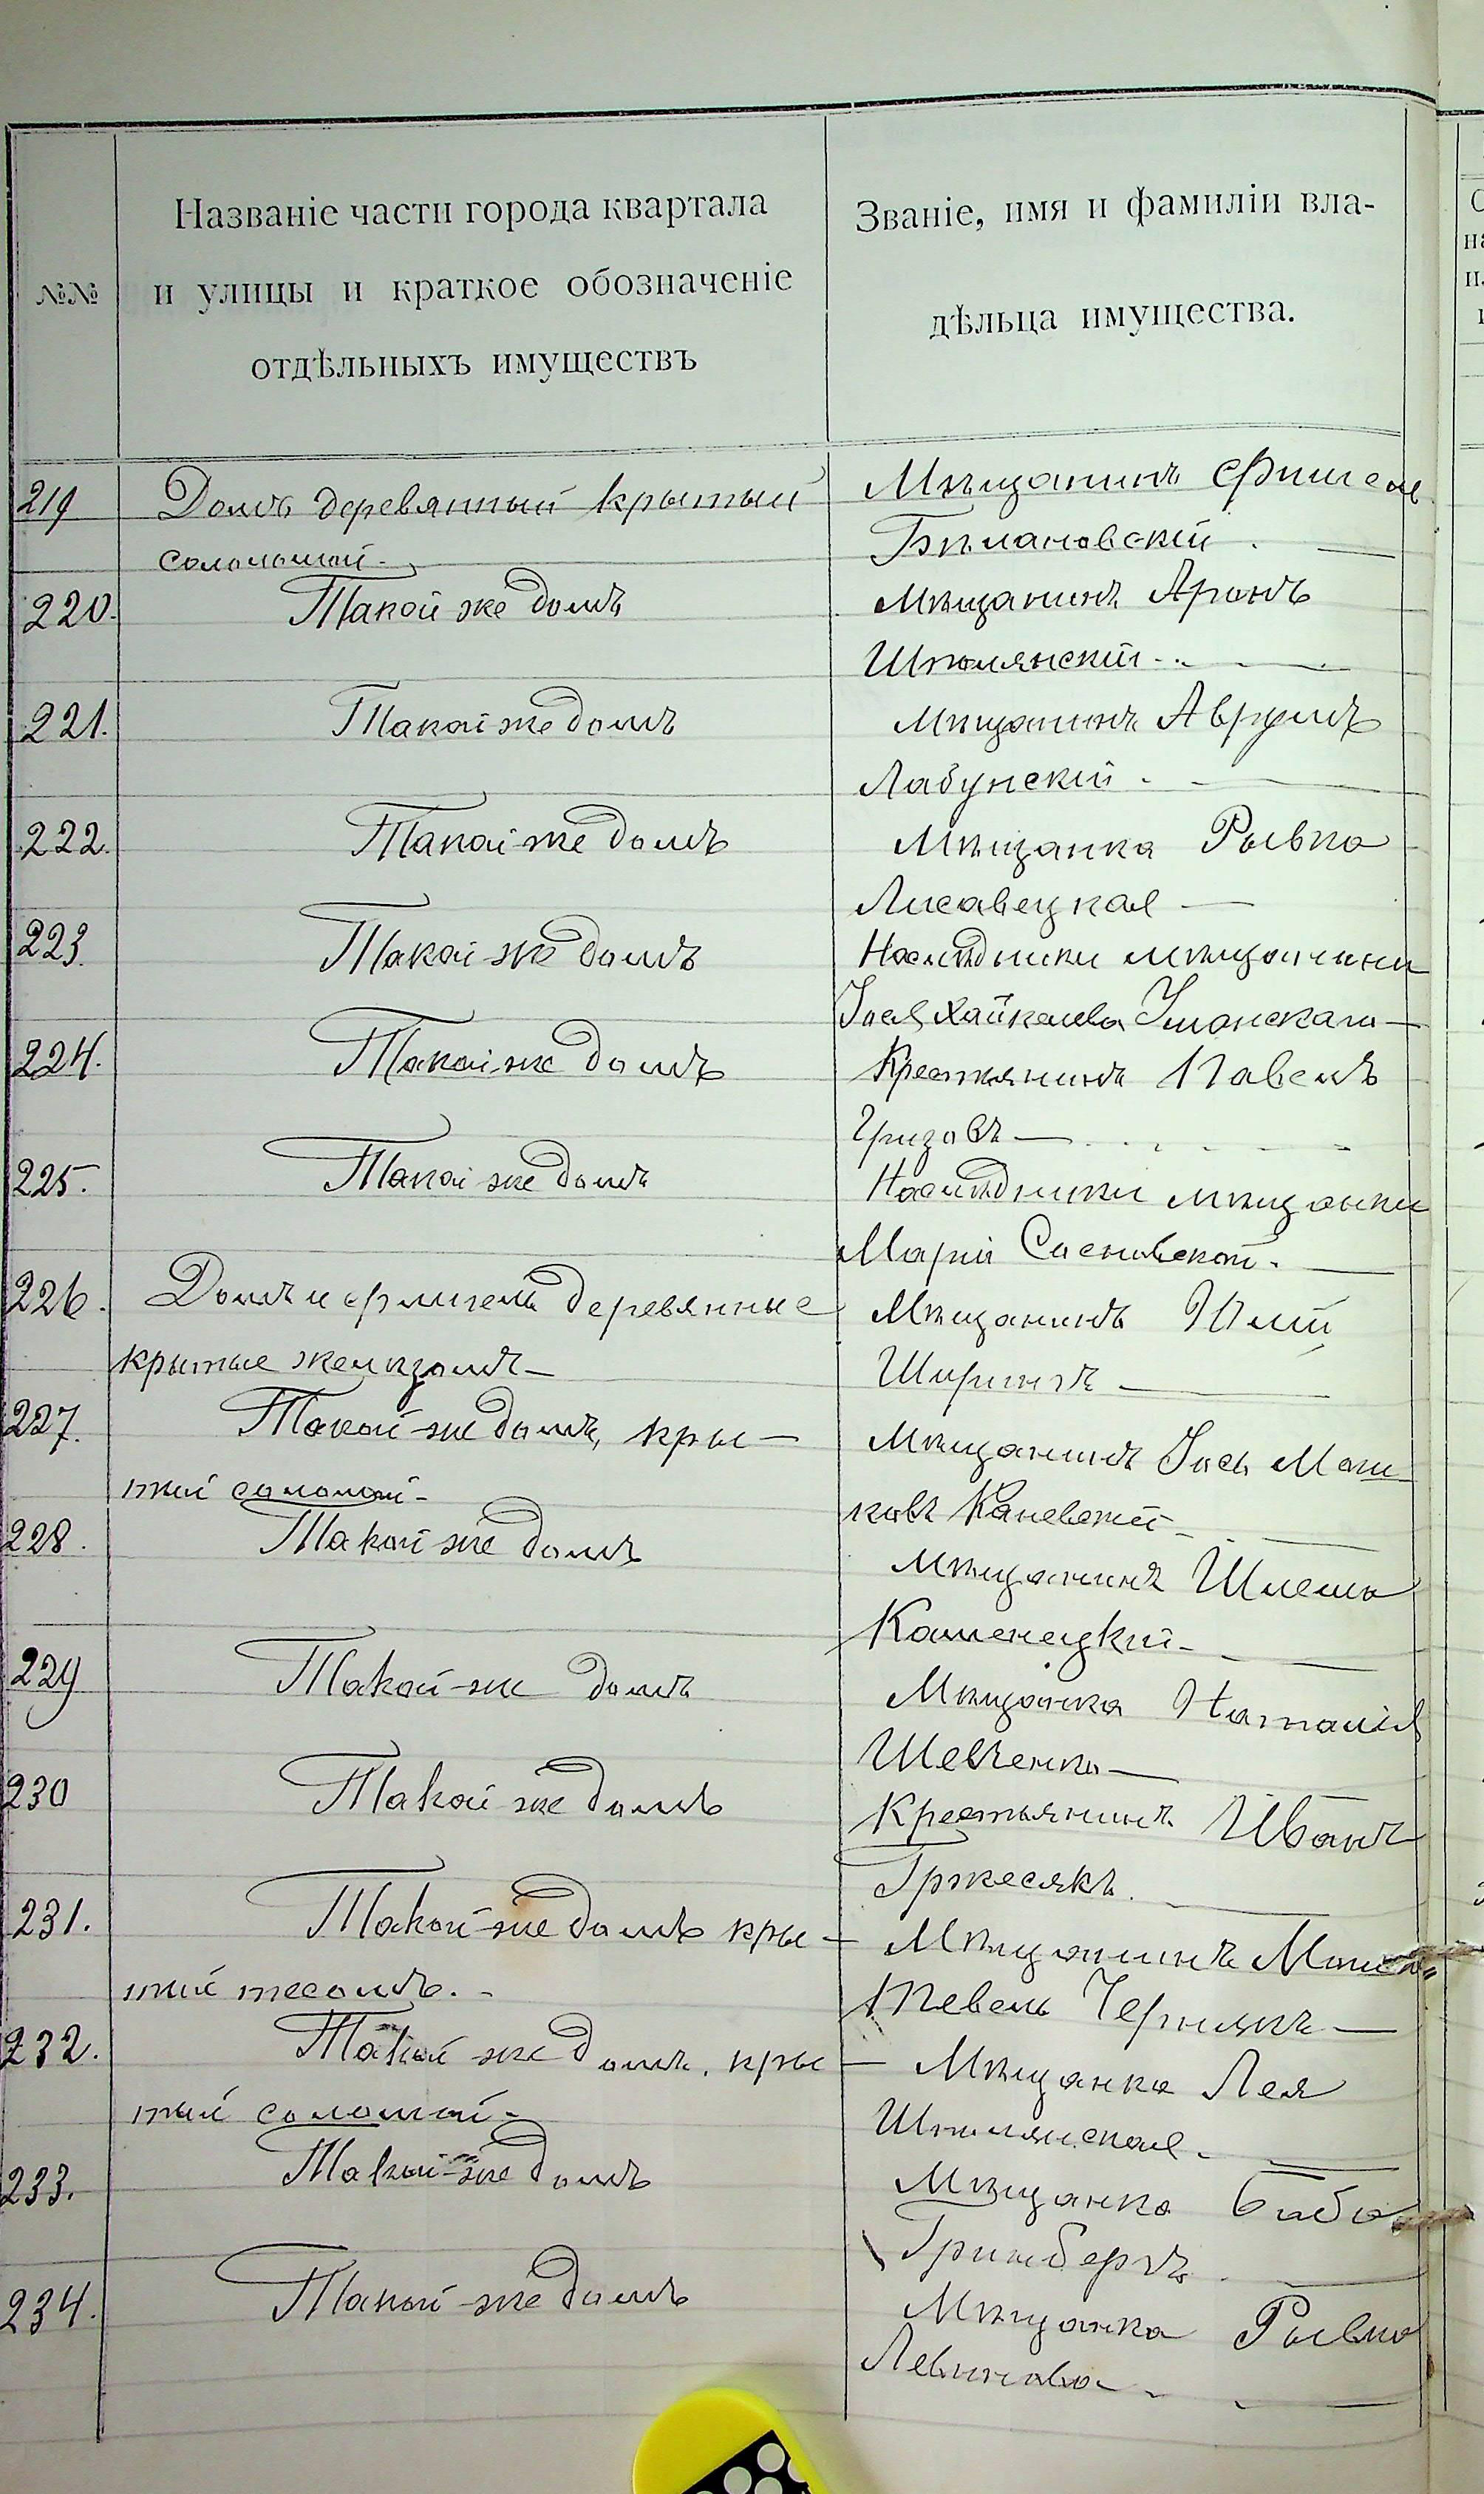 №№
Названіе части города квартала
и улицы и краткое обозначеніе
отдѣльныхъ имуществъ
Званіе, имя и фамиліи вла-
дѣльца имущества.
219 Домъ деревянный крытый
соломой.
Мѣщанинъ Фишель
Бѣлановскій.
220. Такой же домъ
Мѣщанинъ Аронъ
Шполянскій.
221. Такой же домъ
Мѣщанинъ Аврумъ
Лабунскій.
222. Такой же домъ
Мѣщанка Рывка
Лисавецкая
223. Такой же домъ
Наслѣдники мѣщанина
Іося Хайкелева Уманскаго
224. Такой же домъ
Крестьянинъ Павелъ
225. Такой же домъ
Наслѣдники мѣщанки
Маріи Сасновской.
226. Домъ и флигель деревянные
крытые желѣзомъ
Мѣщанинъ
Ширинъ
227. Такой же домъ, кры-
тый соломой
Мѣщанинъ Іось Мош
ковъ Каневскій
228. Такой же домъ
Мѣщанинъ Шлема
Каменецкій
229 Такой-же домъ
Мѣщанка Наталія
Шевченко
230 Такой же домъ
Крестьянинъ Иванъ
Гржесякъ.
231. Такой-же домъ кры-
тый тесомъ.
Мѣщанинъ
Тевель Чернякъ
232. Такой же домъ, кры-
тый соломой
Мѣщанка Лея
Шполянская.
233. Такой-же домъ
Мѣщанка
Гринбергъ.
234. Такой-же домъ
Мѣщанка Рывка
Левинова